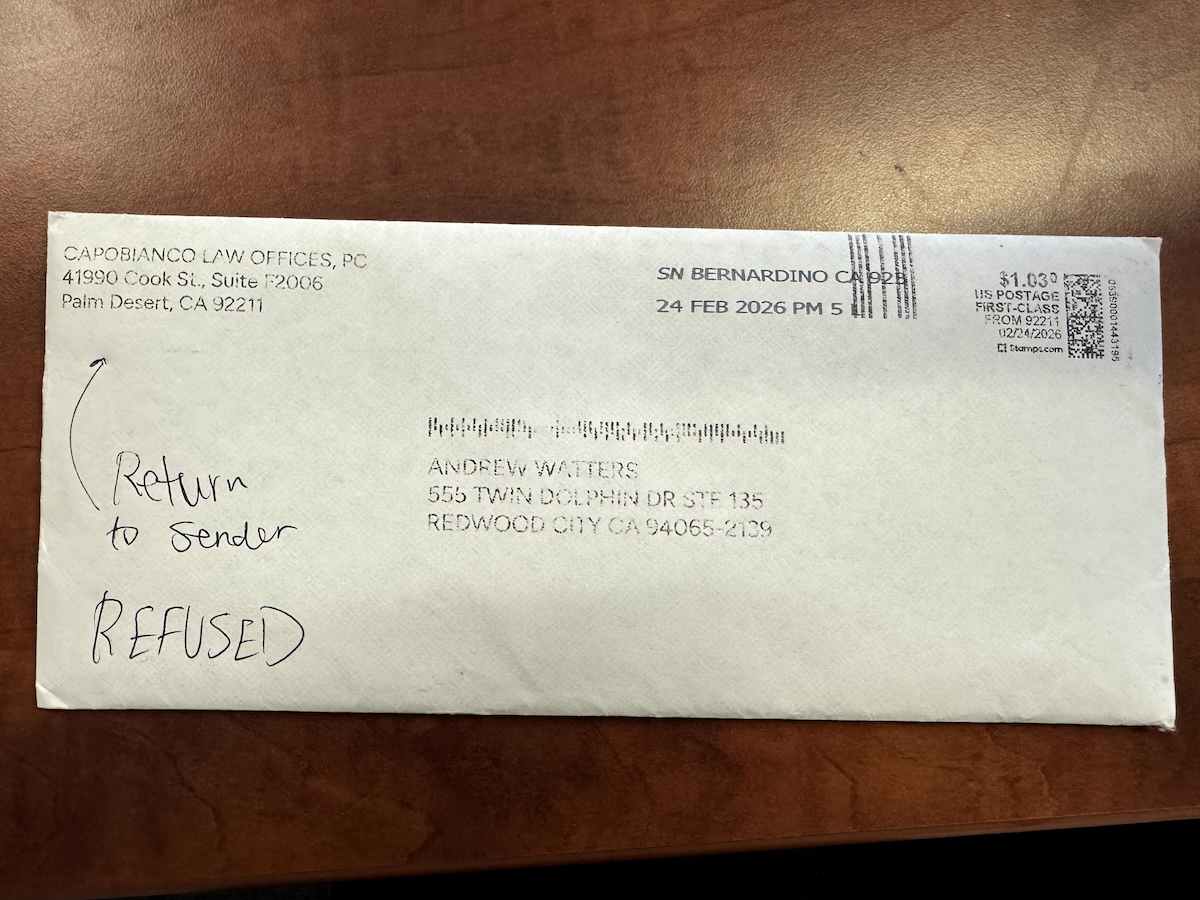 CAPOBIANCO LAW OFFICES, PC
41990 Cook St., Suite F2006
Palm Desert, CA 92211
SN BERNARDINO CA 923
24 FEB 2026 PM 5 L
$1.03⁰
US POSTAGE
FIRST-CLASS
FROM 92211
02/24/2026
Stamps.com
ANDREW WATTERS
555 TWIN DOLPHIN DR STE 135
REDWOOD CITY CA 94065-2139
Return
to Sender
REFUSED